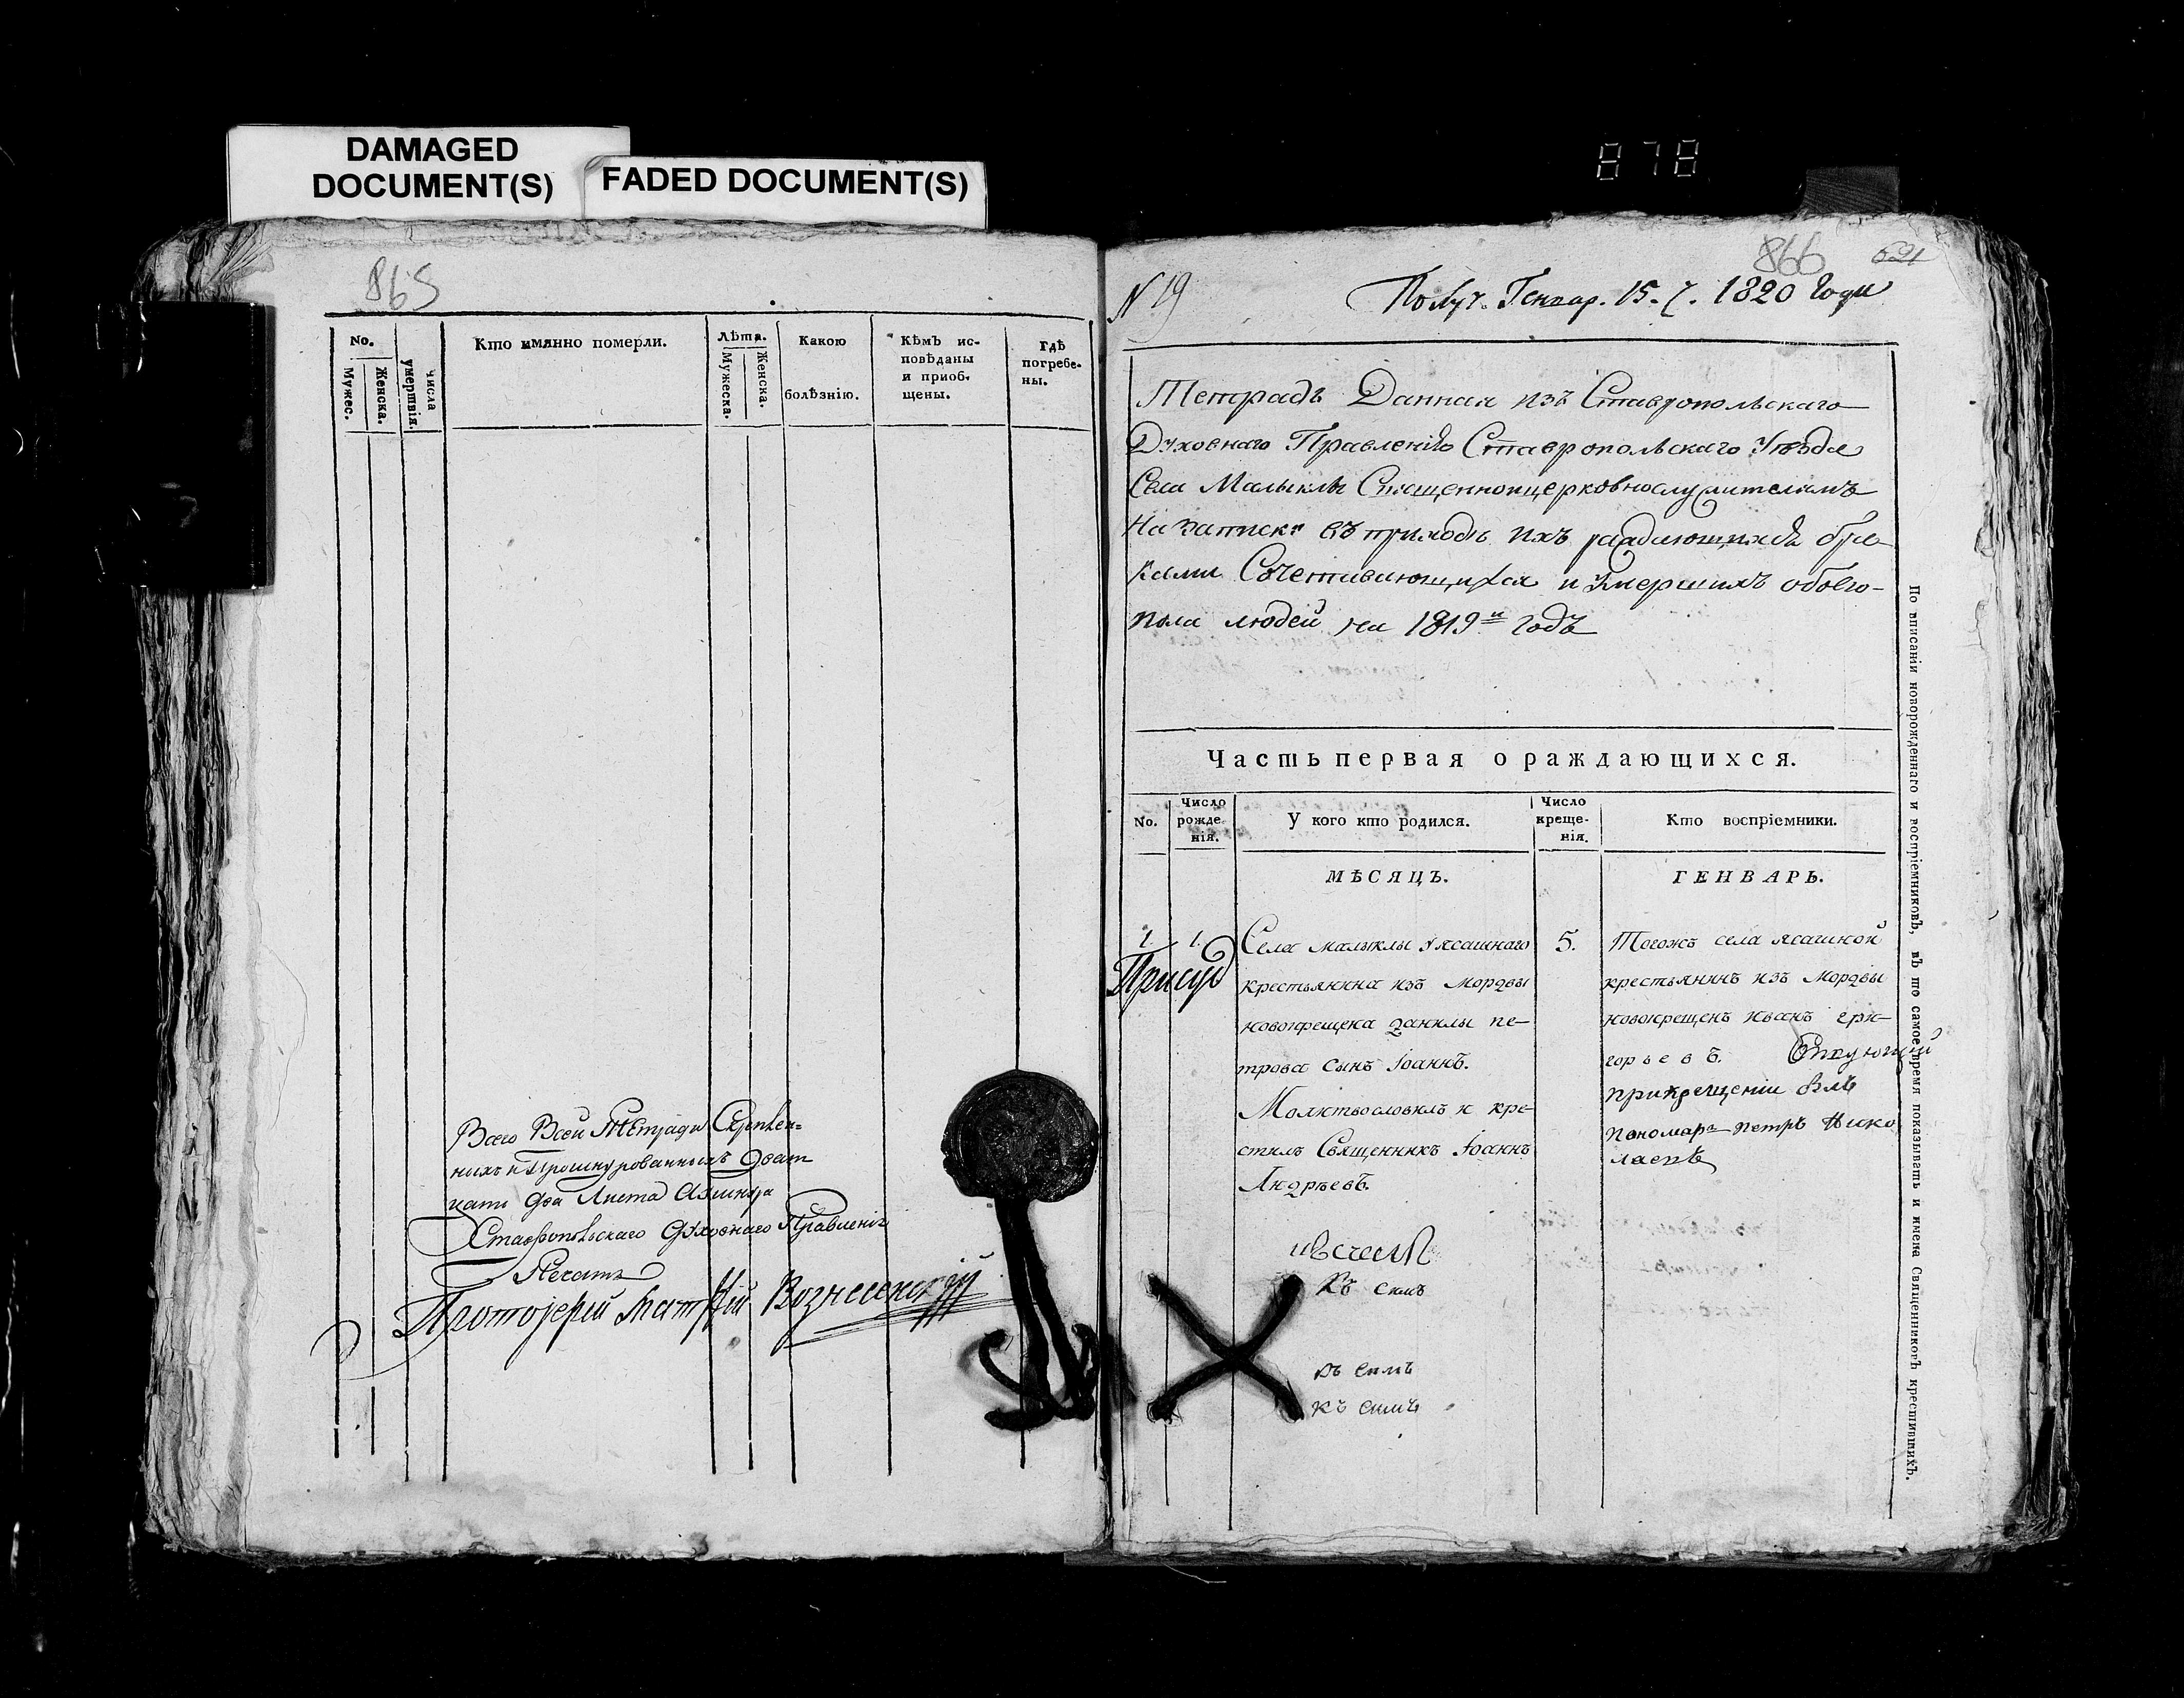 DAMAGED
DOCUMENT(S)
FADED DOCUMENT(S)
878
865
No.
Мужес.
Женска.
числа
умертвія.
Кто имянно померли.
Лѣта.
Мужеска.
Женска.
Какою
болѣзнію.
Кѣмъ ис-
повѣданы
и приоб-
щены.
Гдѣ
погребе-
ны.
Всего Всей Тетради Скрепнен-
ныхъ и Прошнурованныхъ Дват
цати два Листа
Ставропольскаго Духовнаго Правленія
Печать
Протоіерей Матфій Вознесенскій
866
621
N 19
Получ. Генвар. 15. 1820 Года
Тетрадь Данная изъ Ставропольскаго
Духовнаго Правленія Ставропольскаго Уѣзда
Села Малыклы Священноицерковнослужителямъ
На записку въ приходѣ ихъ раждающихся бра-
ками Сочетавающихся и Умершихъ обоего-
пола людей на 1819й годъ
Часть первая о раждающихся.
No.
Число
рожде-
нія.
У кого кто родился.
Число
креще-
нія.
Кто воспріемники.
МѢСЯЦЪ.
ГЕНВАРЬ.
1. 1.
Села малыклы у ясашнаго
крестьянина изъ мордвы
новокрещена данилы пе-
трова сынъ Іоаннъ.
Молитвословилъ и кре-
стилъ Священникъ Іоаннъ
Андреевъ.
5.
Тогожъ села ясашной
крестьянинъ изъ мордвы
новокрещенъ иванъ гри-
горьевъ.
прикрещеніи
пономарь петръ Нико
лаевъ
Къ симъ
къ симъ
къ симъ
По вписаніи новорожденнаго и воспріемниковъ, въ то самое время показывать и имена Священниковъ крестившихъ.